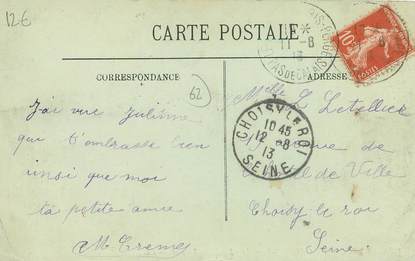 126
CARTE POSTALE
CORRESPONDANCE
ADRESSE
PARIS-PLAGE
11-8
13
PAS DE CALAIS
10
62
J'ai vue Juliènne
qui t'embrasse bien
insi que moi
ta petite amie
M. Creme
Melle L Letellier
CHOISY LE ROI
10 45
12 -8
13
SEINE
de
de Ville
Choisy le roi
Seine